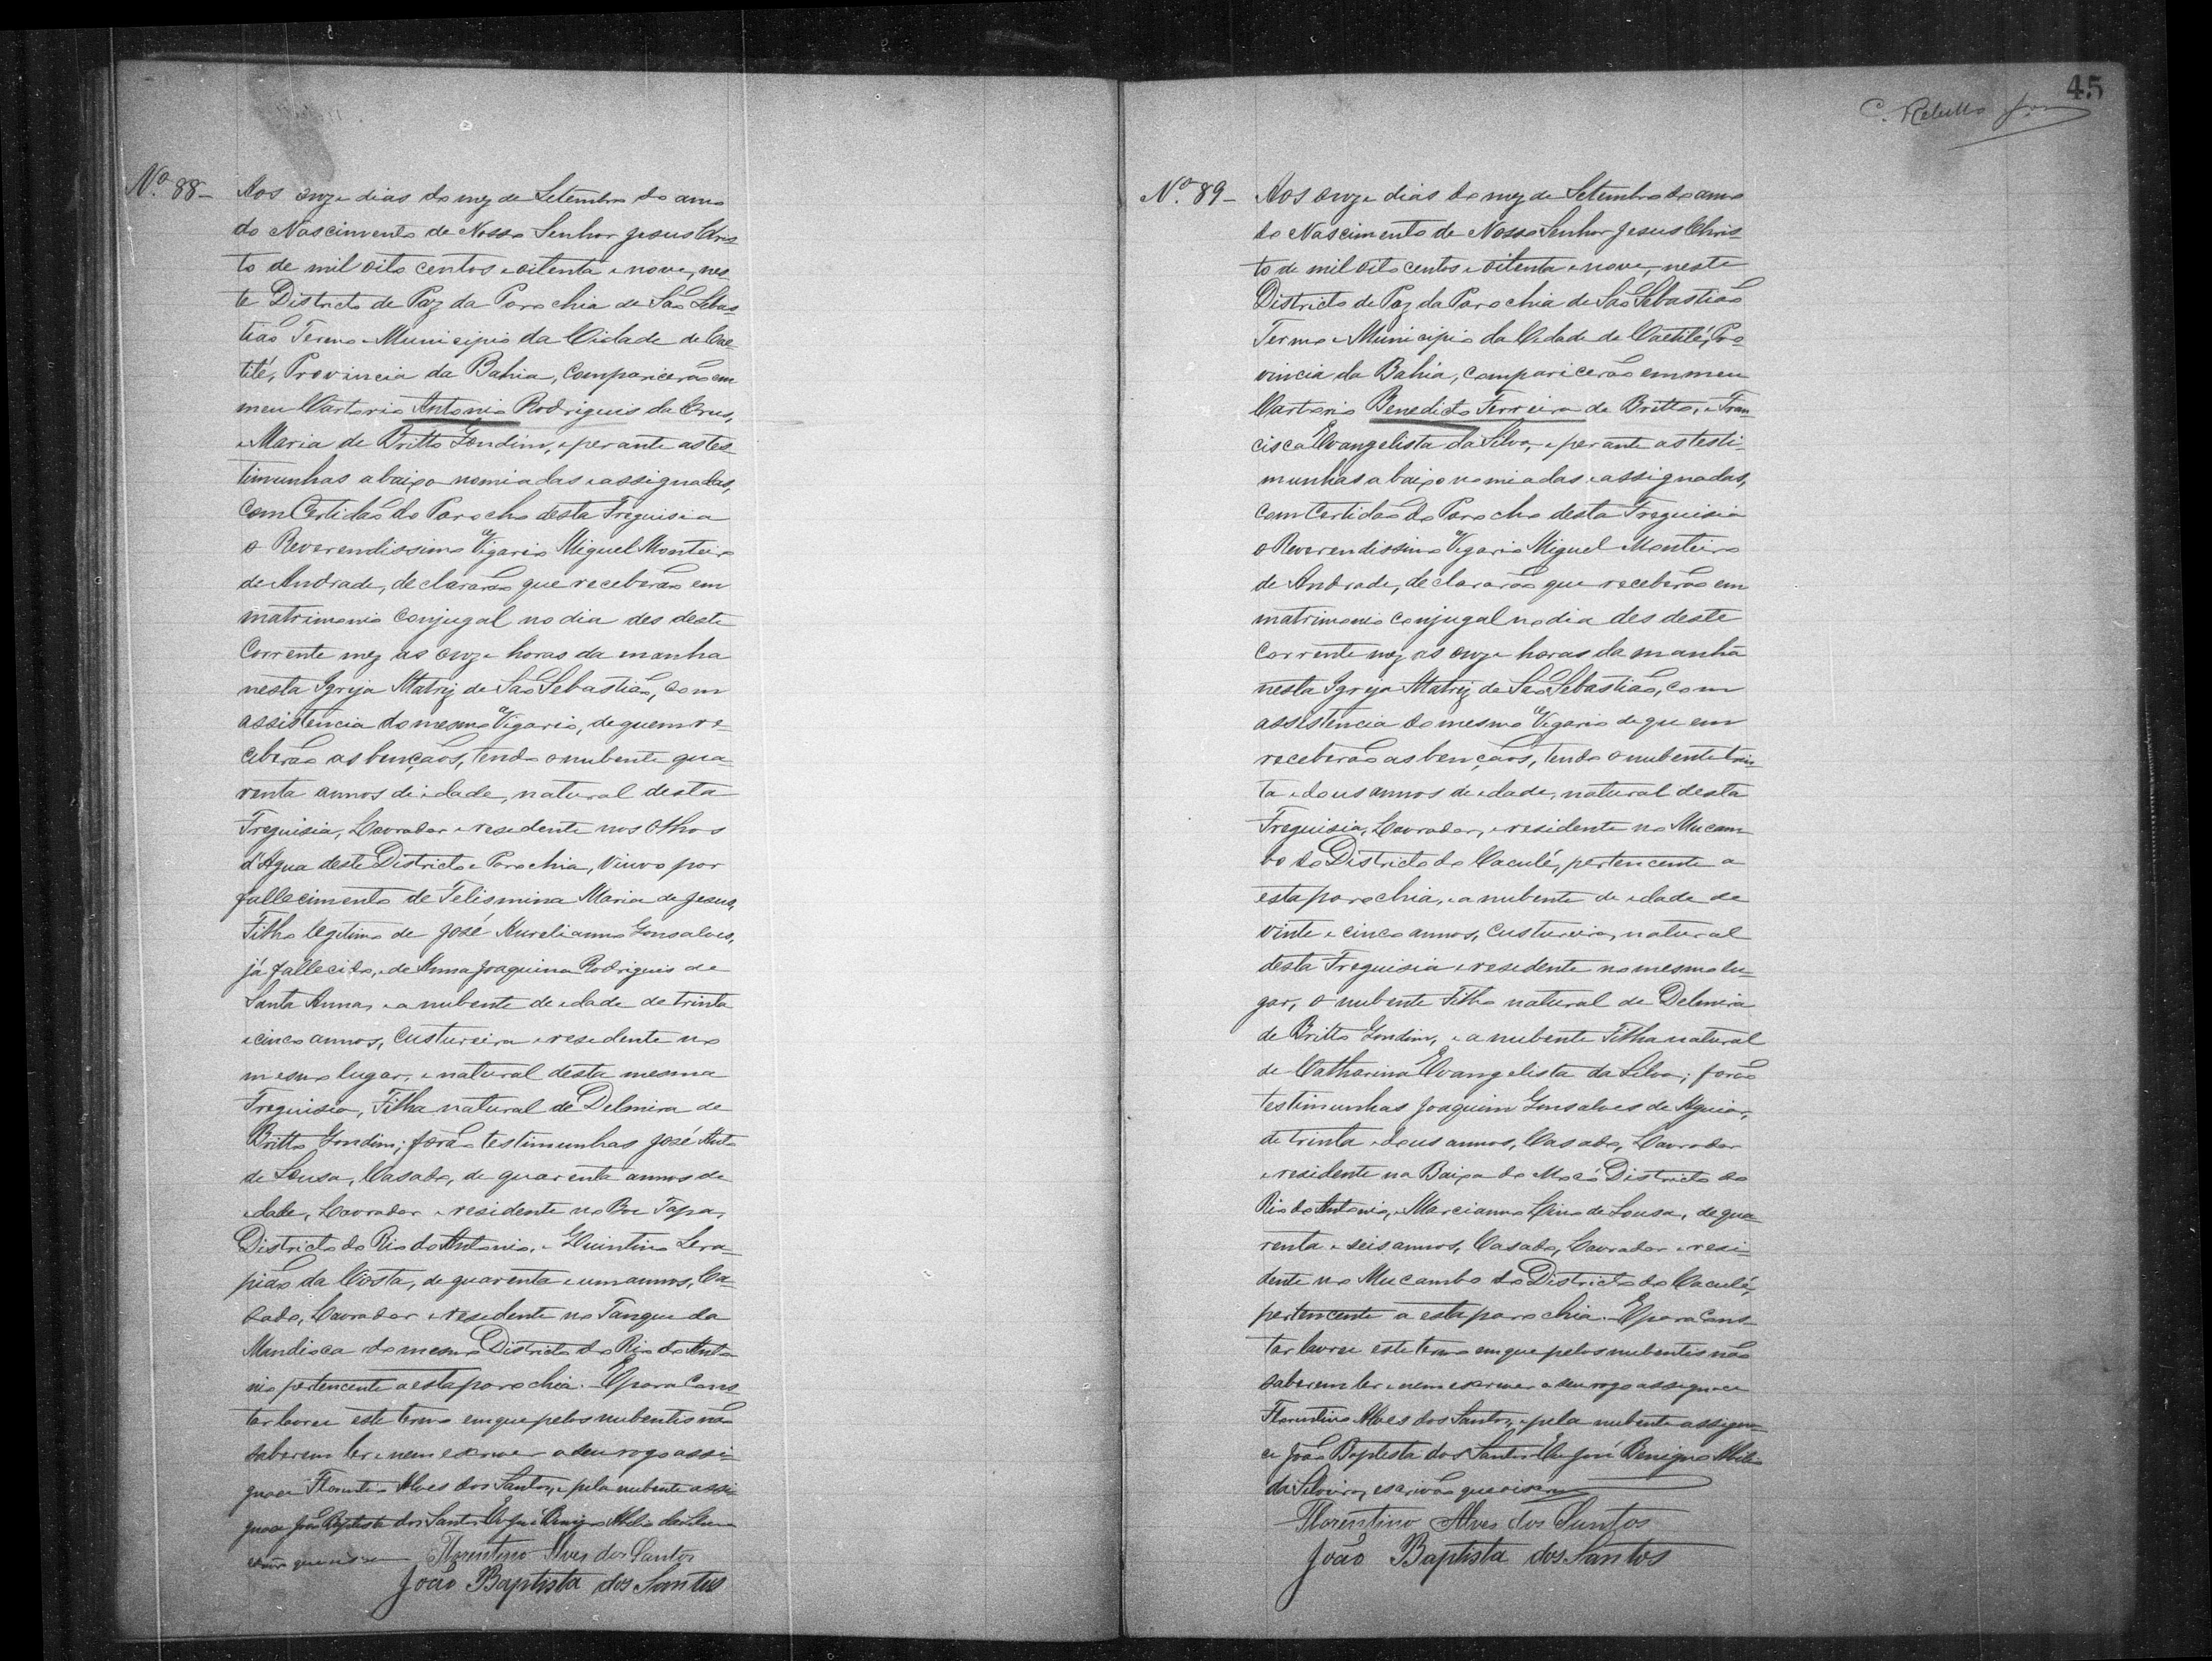 45
C. Rebello
Nº 88- Aos onze dias do mez de Setembro do anno
do Nascimento de Nosso Senhor Jesus Chris
to de mil oito centos e oitenta e nove, nes
te Districto de Paz da Parochia de São Sebas
tião Termo e Municipio da Cidade de Cae
tité, Provincia da Bahia, comparicerão em
meu Cartorio Antonio Rodrigues da Crus,
e Maria de Britto Gondim, e perante as tes
timunhas abaixo nomiadas e assignadas,
com Certidão do Parocho desta Freguisia
o Reverendissimo Vigario Miguel Monteiro
de Andrade, declararão que receberão em
matrimonio conjugal no dia des deste
Corrente mez as onze horas da manha
nesta Igreja Matriz de São Sebastião, com
assistencia do mesmo Vigario, de quem re-
ceberão as bençãos, tendo o nubente qua
renta annos de idade, natural desta
Freguisia, Lavrador e residente nos Olhos
d'Agua deste Districto e Parochia, Viuvo por
fallecimento de Felismina Maria de Jesus,
Filho legitimo de José Aurelianno Gonsalves,
já fallecido, e de Anna Joaquina Rodriguis de
Santa Anna, e a nubente de edade de trinta
e cinco annos, Custureira e residente no
mesmo lugar, e natural desta mesma
Freguisia, Filha natural de Delmira de
Britto Gondim; forão testimunhas José Anto
de Sousa, Casado, de quarenta annos de
edade, Lavrador e residente no Boe Tapa,
Districto do Rio do Antonio, e Quintino Sera
pião da Costa, de quarenta e um annos, Ca-
sado, Lavrador e residente no Tanque da
Mandioca do mesmo Districto do Rio do Anto
nio pertencente a esta parochia. E para Cons
tar lavrei este termo em que pelos nubentis não
saberem ler e nem escrever a seu rogo assi-
gnou Florentino Alves dos Santos, e pela nubente assi
gnou João Baptista dos Santos Eu José Benigno Abilio da Silveira
escrivão que escrevi Florentino Alves dos Santos
João Baptista dos Santos
Nº 89- Aos onze dias do mez de Setembro do anno
do Nascimento de Nosso Senhor Jesus Chris
to de mil oito centos e oitenta e nove, neste
Districto de Paz da Parochia de São Sebastião
Termo e Municipio da Cidade de Caetité, Pro
vincia da Bahia, comparicerão em meu
Cartorio Benedicto Ferreira de Britto, e Fran
cisca Evangelista da Silva, e perante as testi-
munhas abaixo nomiadas e assignadas,
com Certidão do Parocho desta Freguisia
o Reverendissimo Vigario Miguel Monteiro
de Andrade, declararão que receberão em
matrimonio conjugal no dia des deste
Corrente mez as onze horas da manhã
nesta Igreja Matriz de São Sebastião, com
assistencia do mesmo Vigario de quem
receberão as bençãos, tendo o nubente trin
ta e dous annos de edade, natural desta
Freguisia, Lavrador, e residente no Mucam
bo do Districto do Caculé, pertencente a
esta parochia, e a nubente de edade de
vinte e cinco annos, custureira, natural
desta Freguisia e residente no mesmo lu-
gar, o nubente Filho natural de Delmira
de Britto Gondim, e a nubente Filha natural
de Catharina Evangelista da Silva; forão
testimunhas Joaquim Gonsalves de Aguiar,
de trinta e dous annos, Casado, Lavrador
e residente na Baixa do Mocó Districto do
Rio do Antonio, e Marcianno Lino de Sousa, de qua
renta e seis annos, Casado, Lavrador e resi-
dente no Mucambo do Districto do Caculé,
pertencente a esta parochia. E para Cons
tar lavrei este termo em que pelos nubentis não
saberem ler e nem escrever a seu rogo assignou
Florentino Alves dos Santos, e pela nubente assigno
u João Baptista dos Santos Eu José Benigno Abilio
da Silveira, escrivão que escrevi
Florentino Alves dos Santos
João Baptista dos Santos